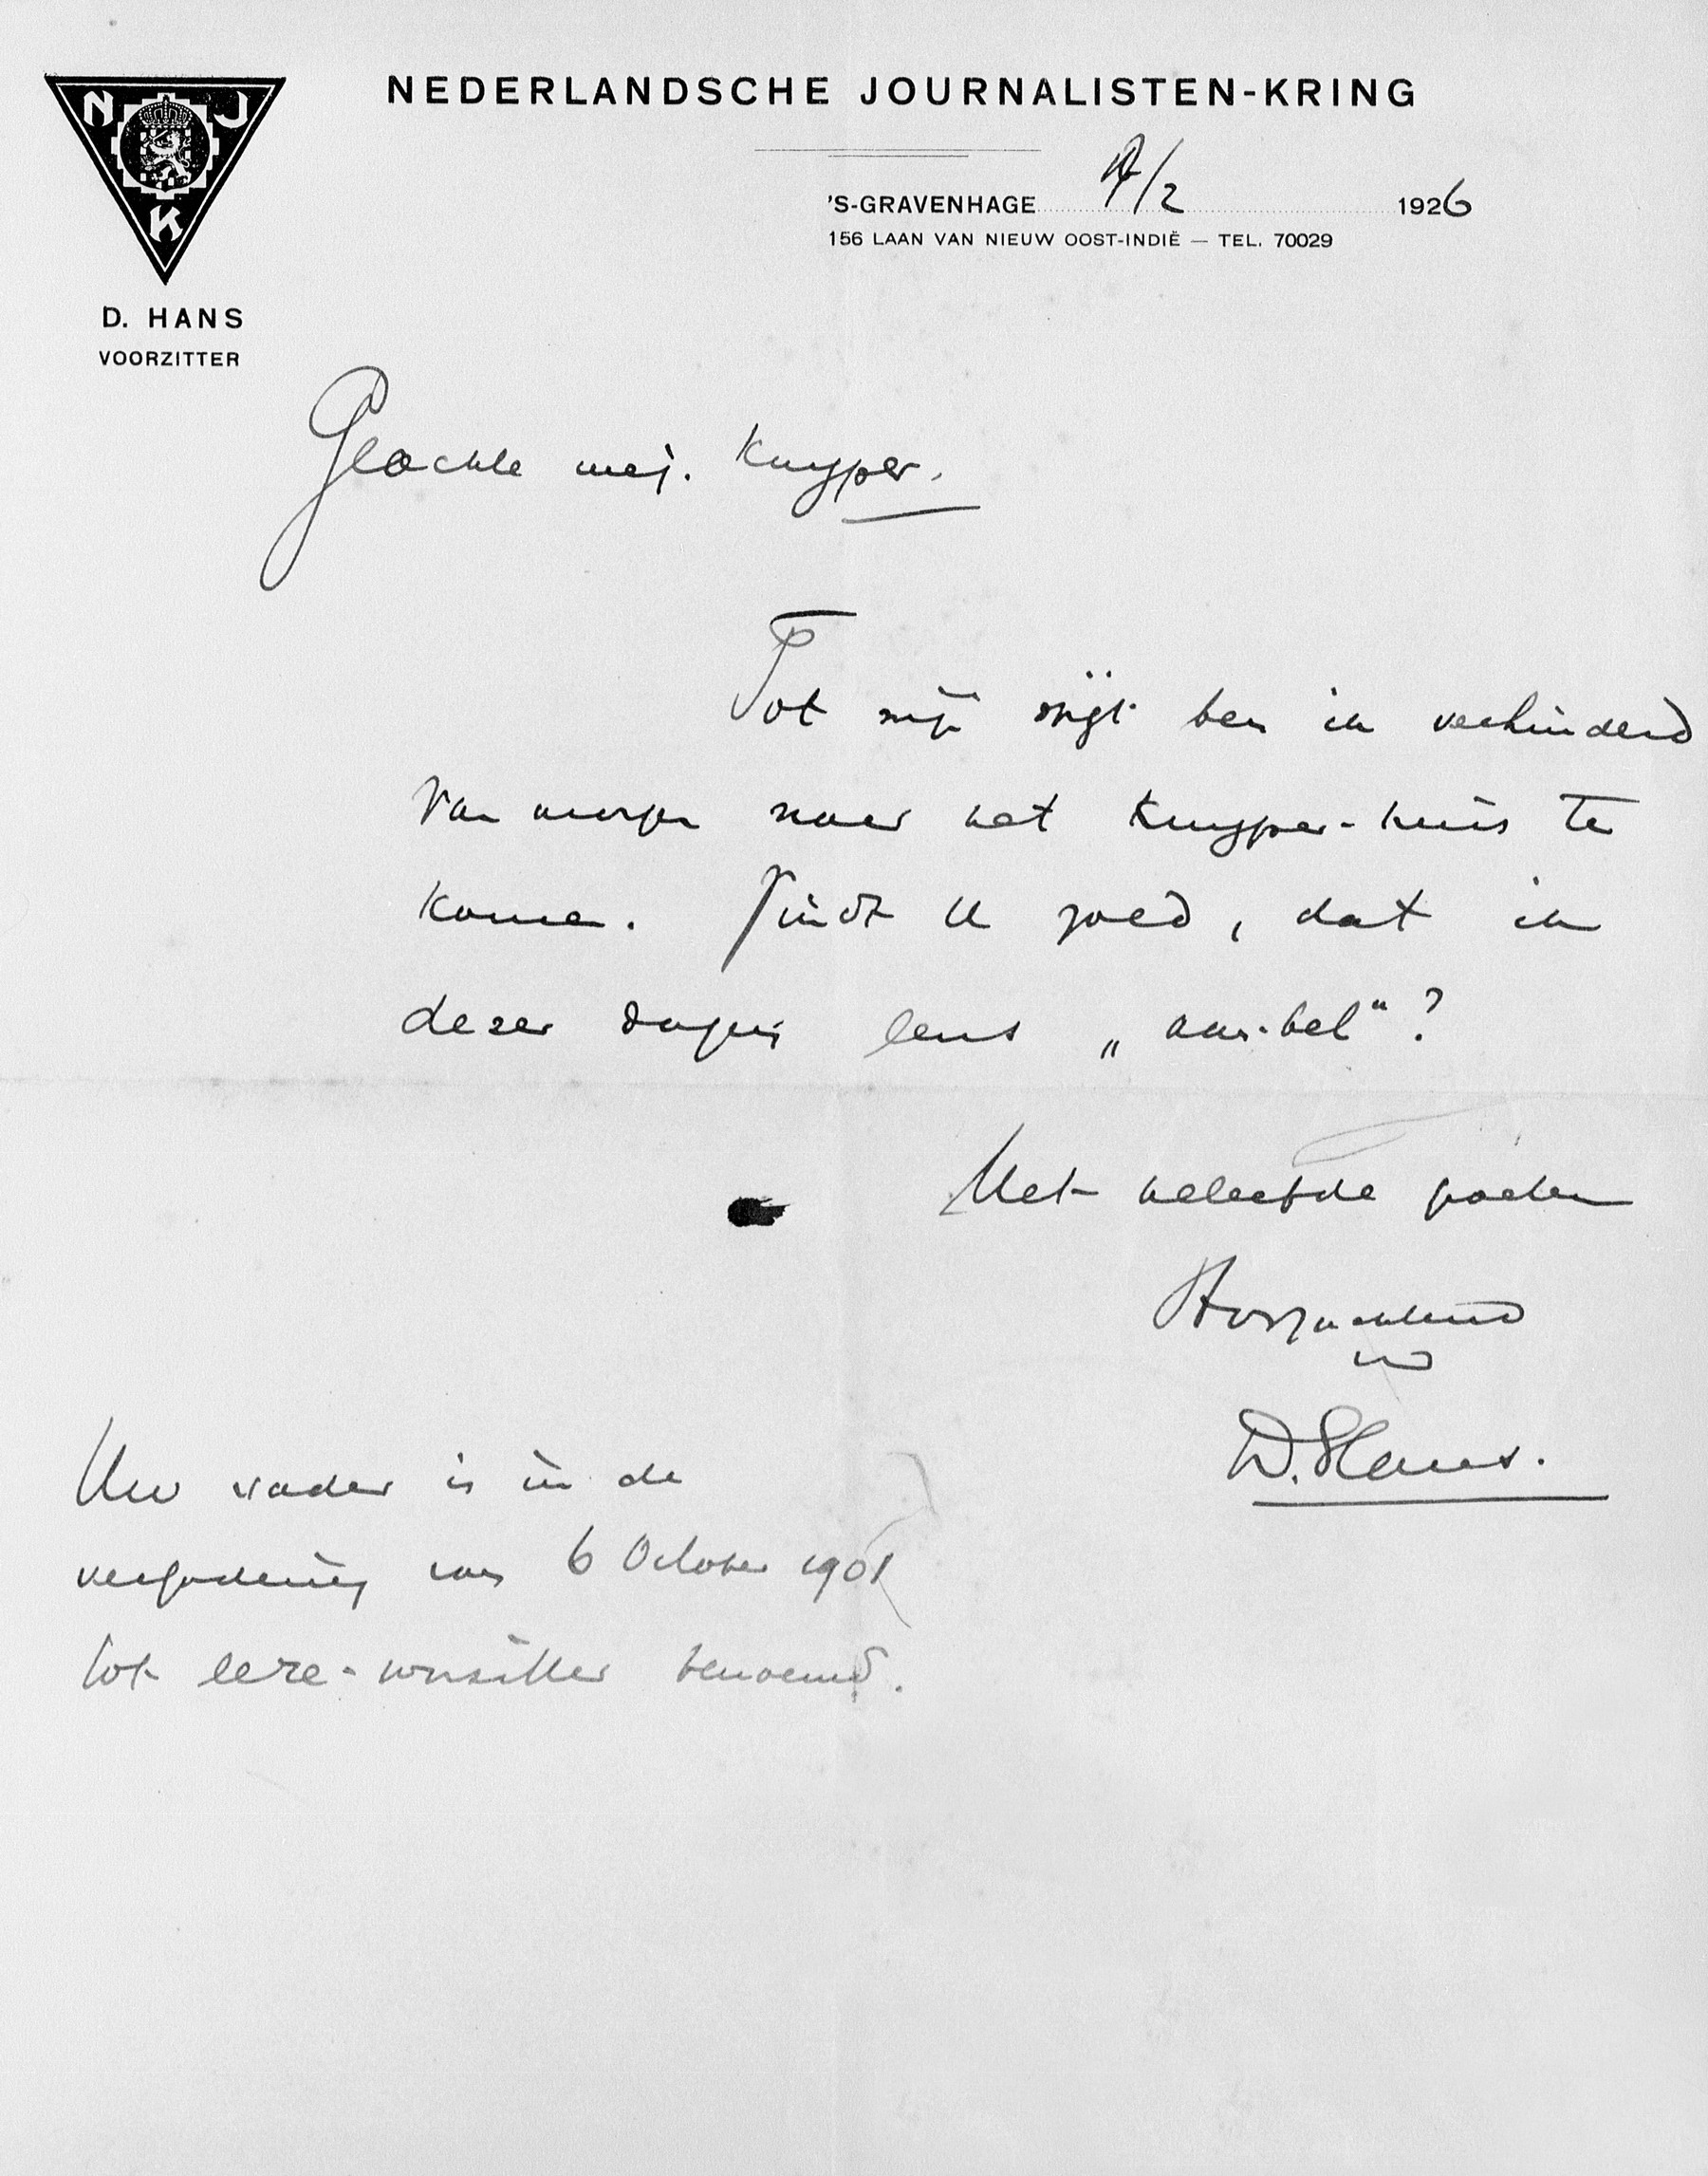 NEDERLANDSCHE JOURNALISTEN-KRING
N J
K
'S-GRAVENHAGE 1926
156 LAAN VAN NIEUW OOST-INDIË — TEL. 70029
D. HANS
VOORZITTER
Geachte mej. Kuyper.
Tot mijn spijt ben ik verhinderd
van morgen naar het Kuyper-huis te
komen. Vindt U goed, dat ik
dezer dagen eens „aan-bel“?
Met beleefde groeten
Hoogachtend
D. Hans.
Uw vader is in de
vergadering van 6 October 1901
tot eere-voorzitter benoemd.